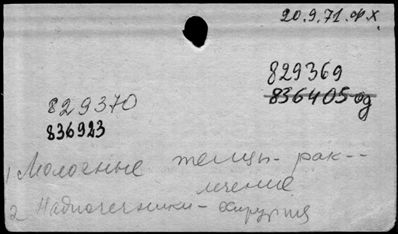 20.9.71.фх
829369
829370
836405 од
836923
1 Молочные железы-рак-
лечение
2 Надпочечники-хирургия